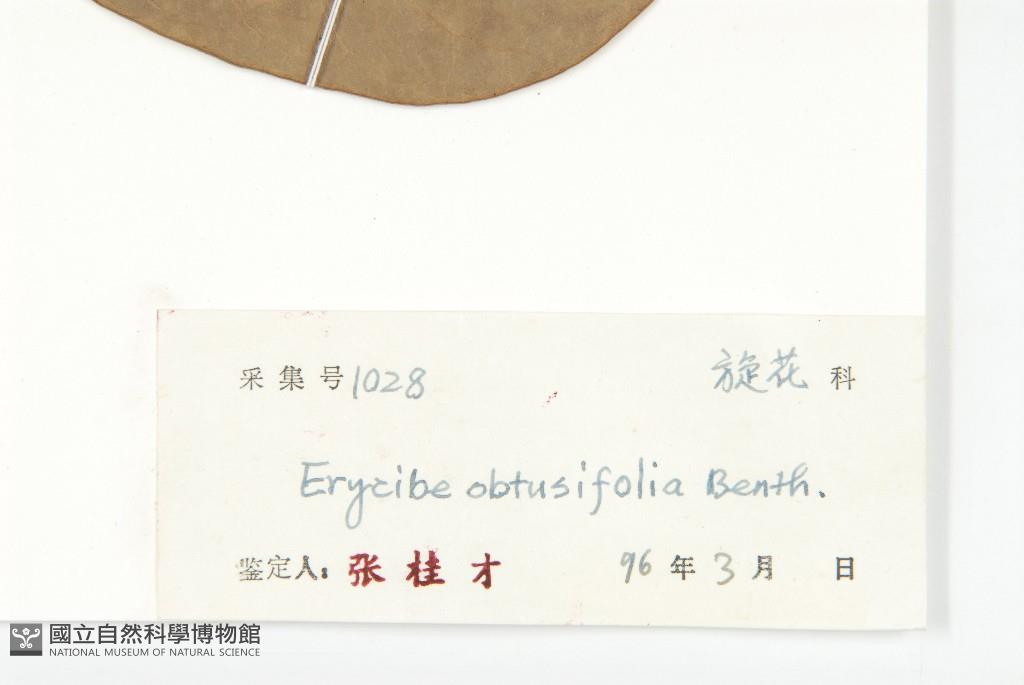 采集号 1028 旋花 科
Erycibe obtusifolia Benth.
鉴定人: 张桂才 96 年 3 月 日
國立自然科學博物館
NATIONAL MUSEUM OF NATURAL SCIENCE